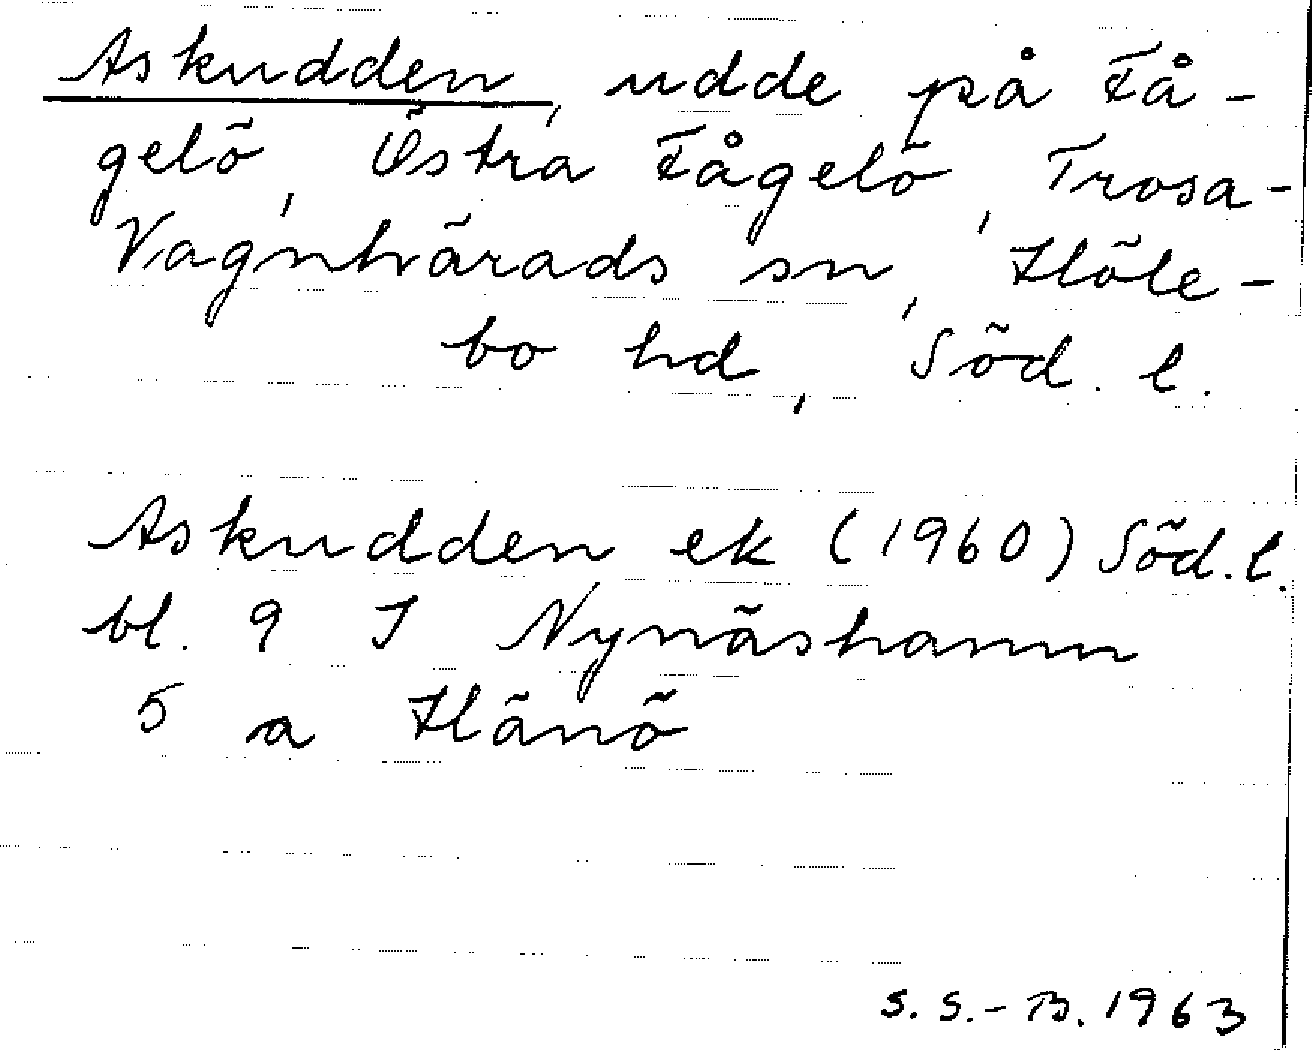 Askudden, udde på Få-
gelö, Östra Fågelö, Trosa-
Vagnhärads sn, Höle-
bo hd, Söd. l.
Askudden ek (1960) Söd. l.
bl. 9 I Nynäshamn
5 a Hänö
S. S.-B. 1963